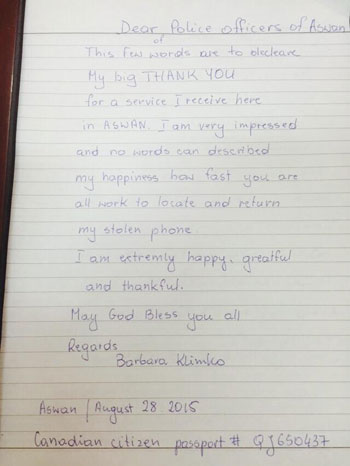 Dear Police officers of Aswan!
of
This few words are to decleare
My big THANK YOU
for a service I receive here
in ASWAN. I am very impressed
and no words can described
my happiness how fast you are
all work to locate and return
my stolen phone.
I am extremly happy, greatful
and thankful.
May God Bless you all
Regards
Barbara Klimko
Aswan / August 28 2015
Canadian citizen passport # QJ650437